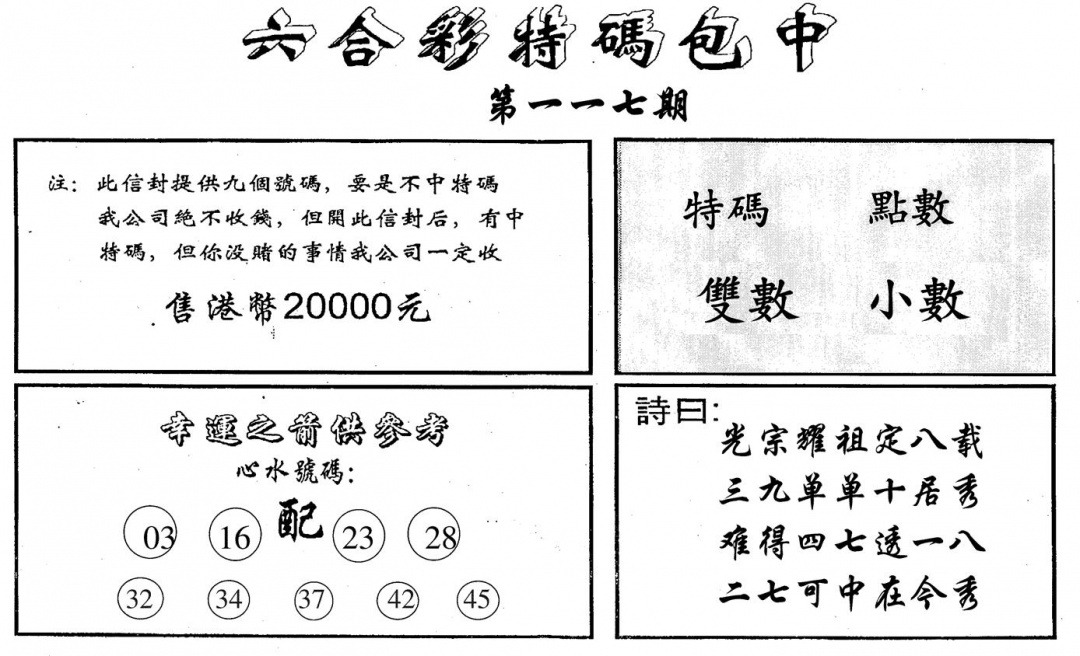 六合彩特碼包中
第一一七期
注：此信封提供九個號碼，要是不中特碼
我公司絶不收錢，但開此信封后，有中
特碼，但你没賭的事情我公司一定收
售港幣20000元
特碼 點數
雙數 小數
幸運之箭供參考
心水號碼：
配
03 16 23 28
32 34 37 42 45
詩曰：
光宗耀祖定八载
三九单单十居秀
难得四七透一八
二七可中在今秀